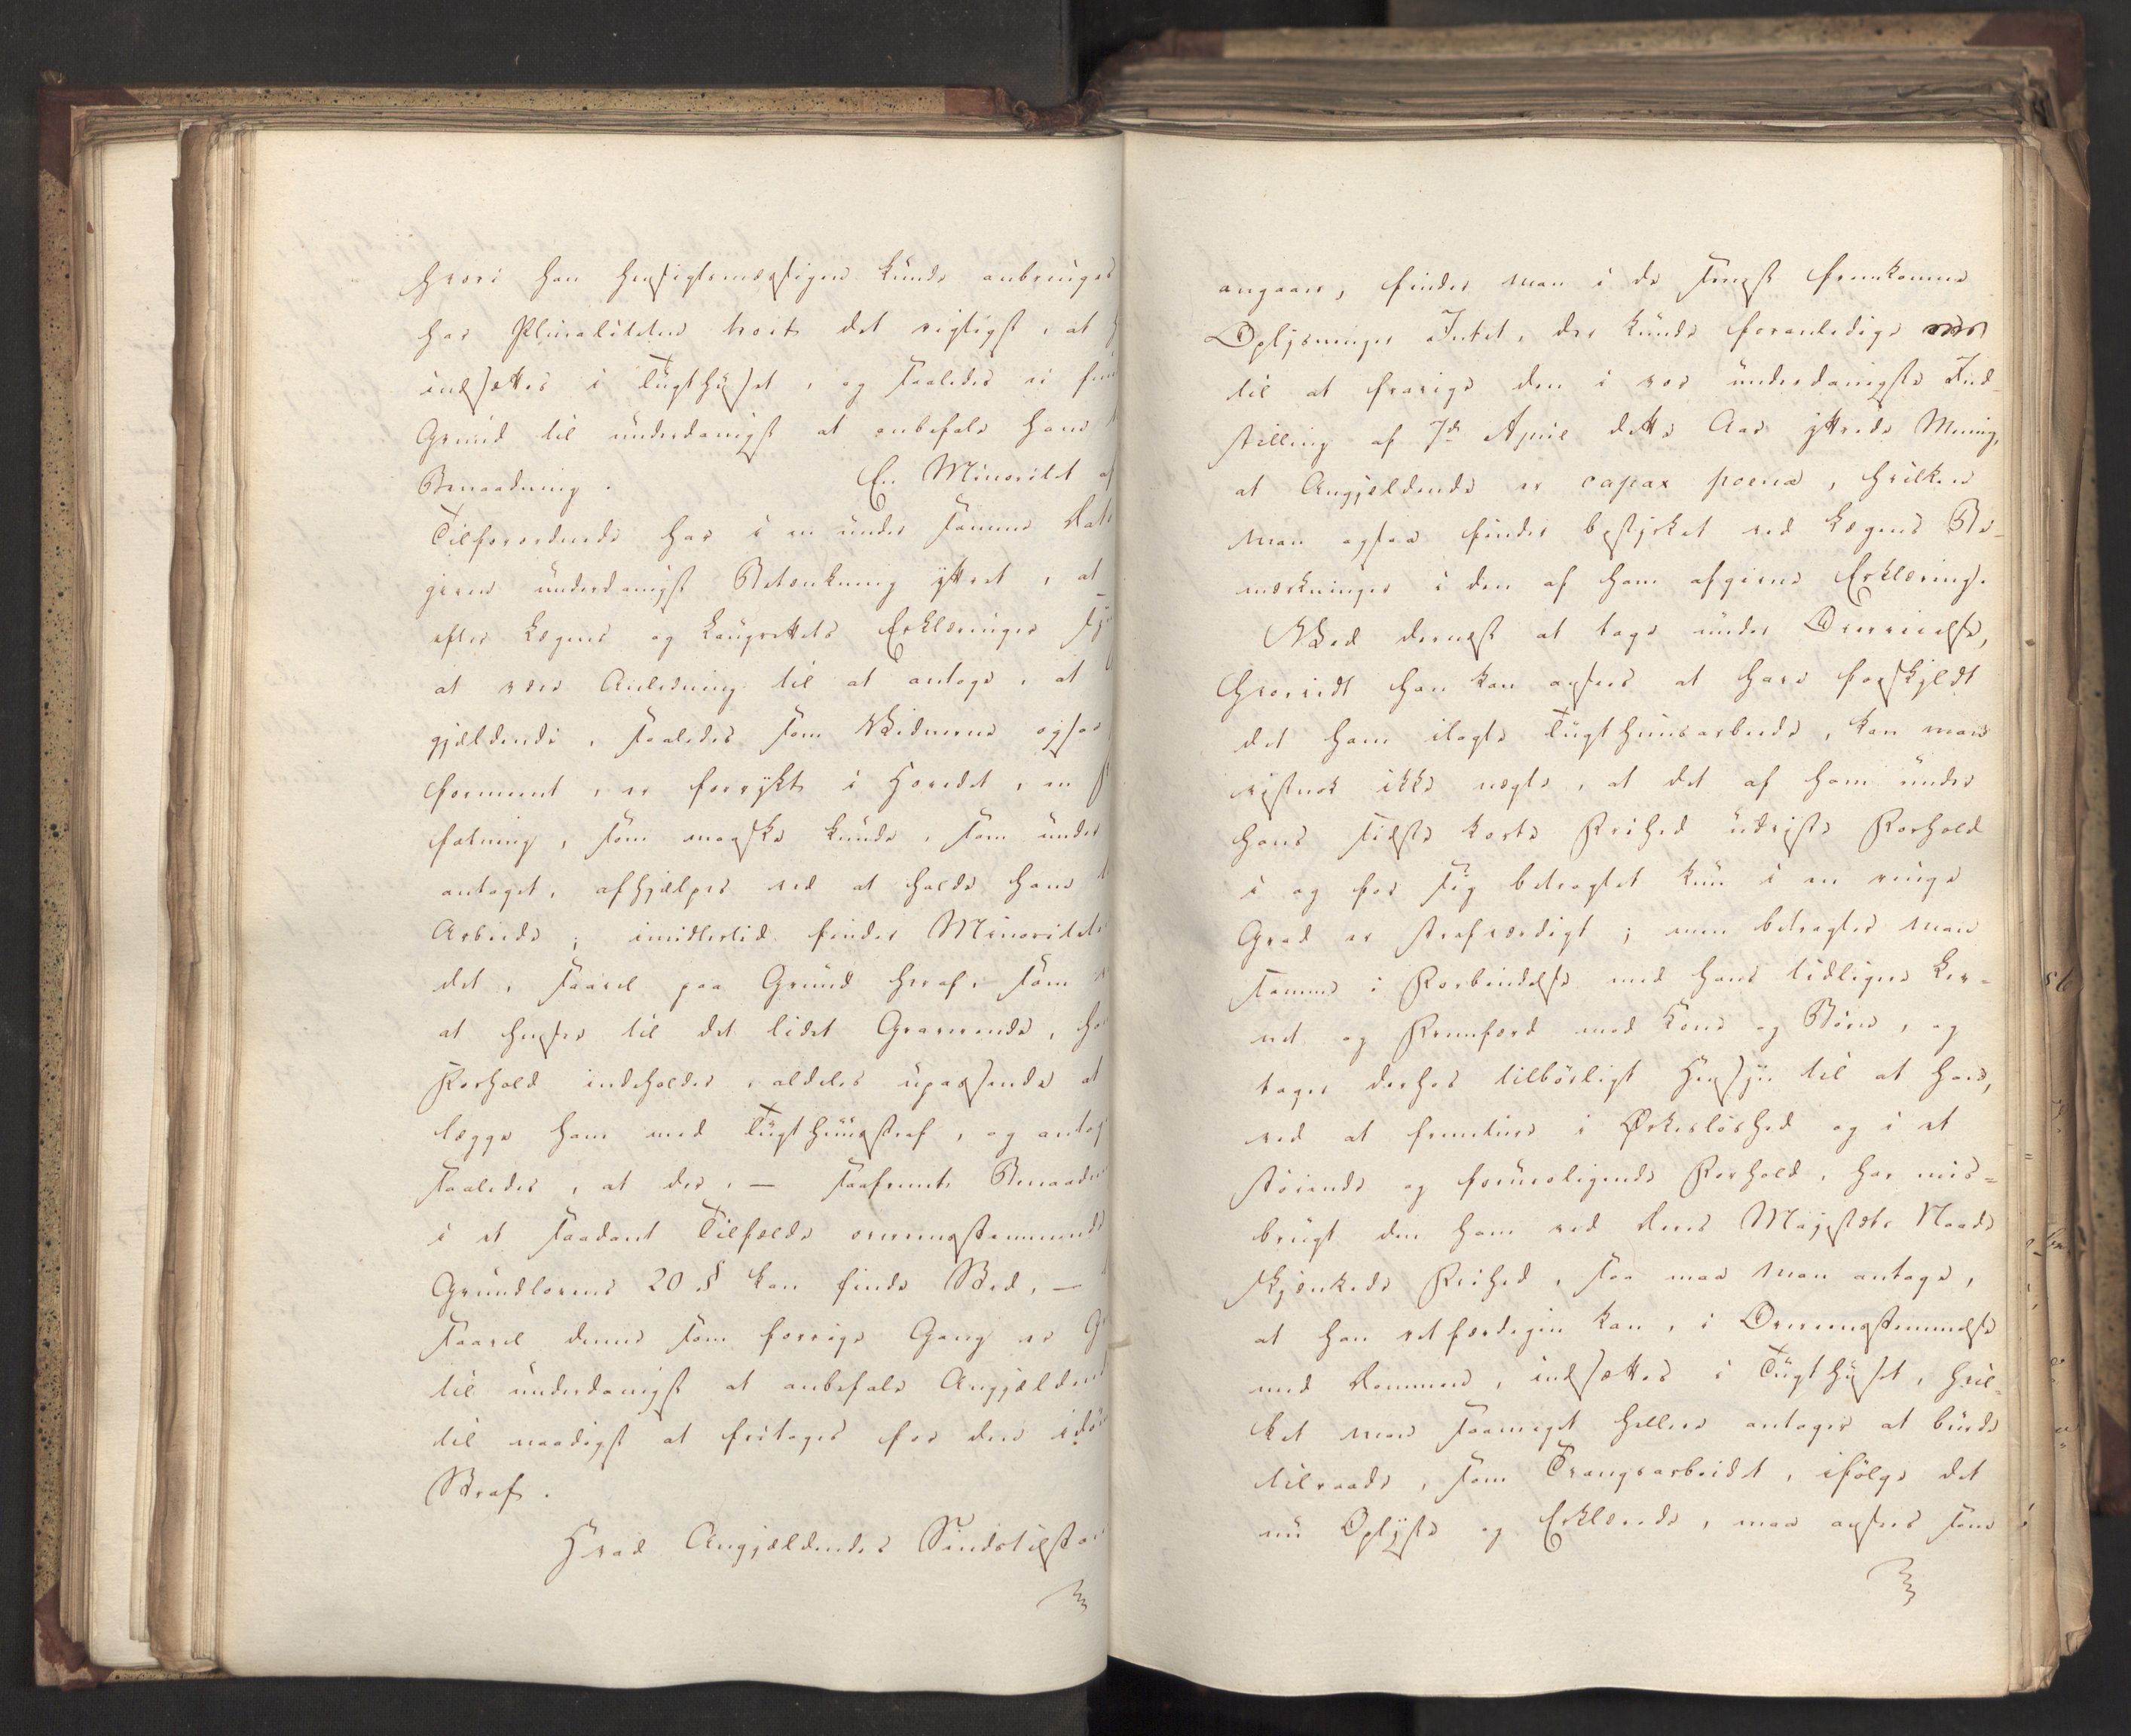 hvori han hensigtsmæssigen kunde anbringes
har Pluraliteten troet det rigtigst, at h
indsættes i Tugthuset, og saaledes ei fun
Grund til underdanigst at anbefale hans
Benaadning. En Minoritet af
Tilforordnede har i en under samme Dato
given underdanigst Betænkning yttret, at
efter Lægens og Laugrettets Erklæringer sy
at være Anledning til at antage, at
gjældende, saaledes som Vidnerne ogsaa
formeent, er forrykt i Hovedet, en
fatning, som maaske kunde, som under
antaget, afhjælpes ved at holde ham t
Arbeide; imidlertid finder Minoritete
det, saavel paa Grund heraf, som
at hensees til det lidet Graverende, ha
Forhold indeholder, aldeles upassende at
lægge ham med Tugthuusstraf, og antag
saaledes, at der, — saafremt Benaadni
i et saadant Tilfælde overeensstemmende
Grundlovens 20 § kan finde Sted, —
saavel denne som forrige Gang er G
til underdanigst at anbefale Angjældend
til naadigst at fritages for den idøm
Straf.
Hvad Angjældendes Sindstilstan
angaaer, finder man i de senest fremkomne
Oplysninger Intet, der kunde foranledige os
til at fravige den i vor underdanigste Ind-
stilling af 7de April dette Aar yttrede Mening,
at Angjældende er capax poenæ, hvilken
man ogsaa finder bestyrket ved Lægens Be-
mærkninger i den af ham afgivne Erklæring.
Ved dernæst at tage under Overveielse,
hvorvidt han kan ansees at have forskyldt
det ham ilagte Tugthuusarbeide, kan man
vistnok ikke nægte, at det af ham under
hans sidste korte Frihed udviste Forhold
i og for sig betragtet kun i en ringe
Grad er strafværdigt; men betragter man
samme i Forbindelse med hans tidligere Lev-
net og Fremfærd mod Kone og Børn, og
tager derhos tilbørligt Hensyn til at han,
ved at fremture i Ørkesløshed og i et
støiende og foruroligende Forhold, har mis-
brugt den ham ved Deres Majestæts Naade
skjænkede Frihed, saa maa man antage,
at han retfærdigen kan, i Overeensstemmelse
med Dommen, indsættes i Tugthuset, hvil-
ket man saameget hellere antager at burde
tilraade, som Tvangsarbeidet, ifølge det
nu Oplyste og Erklærede, maa ansees som